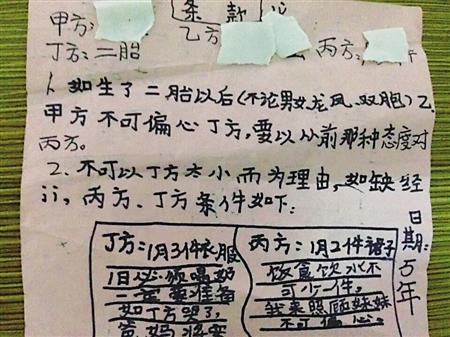 条款
甲方:
乙方
丙方:
丁方:二胎
1、如生了二胎以后(不论男女龙凤、双胞)乙、
甲方不可偏心丁方,要以从前那种态度对
丙方。
2、不可以丁方太小而为理由,如缺经
济,丙方、丁方条件如下:
丁方:1月3件衣服
1日必须喝奶
一定要准备
如丁方哭了,
爸、妈将要
丙方:1月2件裙子
饭食饮水不
可少一件。
我来照顾妹妹
不可偏心。
日期:5年